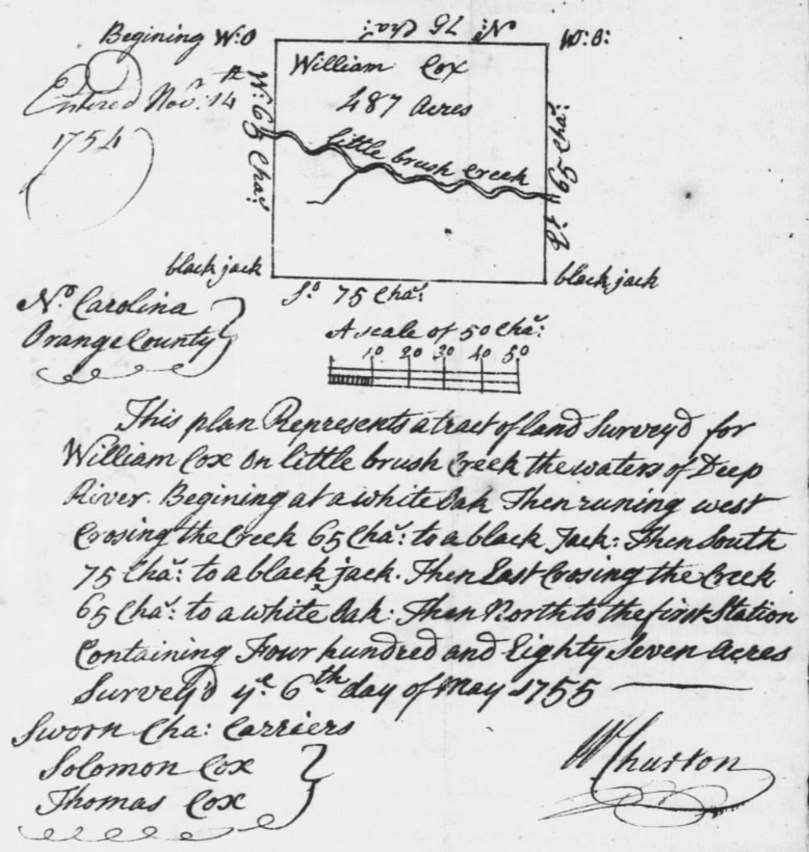 Begining W:O
No: 75 Cha:
W:O:
Entered Novr: 14th
1754
William Cox
487 Acres
W: 65 Cha:
little brush Creek
Et: 65 Cha:
black jack
black jack
So: 75 Cha:
No Carolina
Orange County
A scale of 50 Cha:
10 20 30 40 50
This plan Represents a tract of land Survey'd for
William Cox on little brush Creek the waters of Deep
River. Begining at a white Oak Then runing west
Crosing the Creek 65 Cha: to a black Jack: Then South
75 Cha: to a black jack. Then East Crosing the Creek
65 Cha: to a white Oak: Then North to the first Station
Containing Four hundred and Eighty Seven Acres
Survey'd ye 6th day of May 1755
Sworn Cha: Carriers
Solomon Cox
Thomas Cox
W Churton